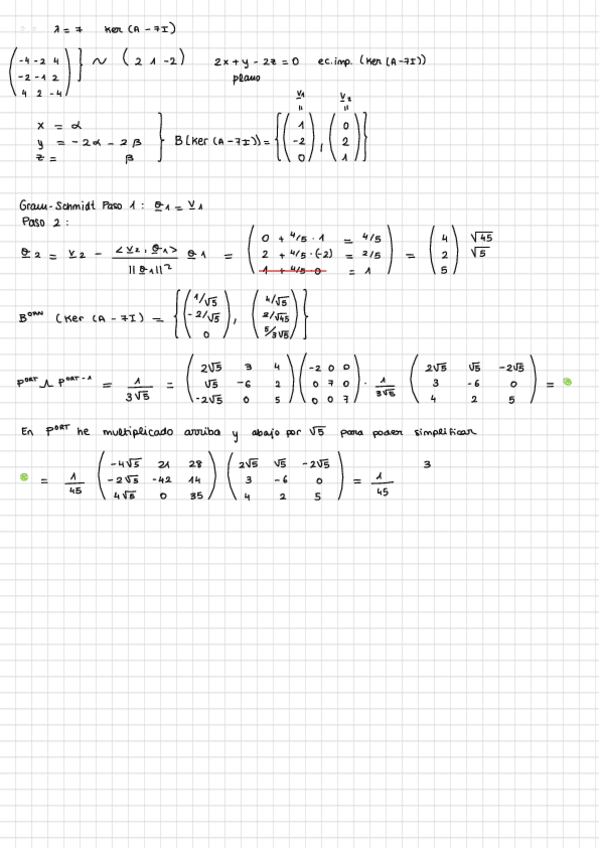 λ = 7 Ker (A - 7I)
( -4 -2 4 ; -2 -1 2 ; 4 2 -4 ) } ~ ( 2 1 -2 ) 2x + y - 2z = 0 ec. imp. (Ker (A-7I))
plano
x = α
y = -2α - 2β
z = β
} B (Ker (A - 7I)) = { v1 = ( 1 ; -2 ; 0 ) , v2 = ( 0 ; 2 ; 1 ) }
Gram-Schmidt Paso 1: θ1 = v1
Paso 2:
θ2 = v2 - <v2, θ1> / ||θ1||² θ1 = ( 0 + 4/5 · 1 = 4/5 ; 2 + 4/5 · (-2) = 2/5 ; 1 + 4/5 · 0 = 1 ) = ( 4 ; 2 ; 5 ) √45 √5
B^ORN (Ker (A - 7I) = { ( 1/√5 ; -2/√5 ; 0 ) , ( 4/√5 ; 2/√45 ; 5/3√5 ) }
P^ORT Λ P^ORT-1 = 1/3√5 = ( 2√5 3 4 ; √5 -6 2 ; -2√5 0 5 ) ( -2 0 0 ; 0 7 0 ; 0 0 7 ) · 1/3√5 ( 2√5 √5 -2√5 ; 3 -6 0 ; 4 2 5 ) =
En P^ORT he multiplicado arriba y abajo por √5 para poder simplificar
= 1/45 ( -4√5 21 28 ; -2√5 -42 14 ; 4√5 0 35 ) ( 2√5 √5 -2√5 ; 3 -6 0 ; 4 2 5 ) = 1/45 3